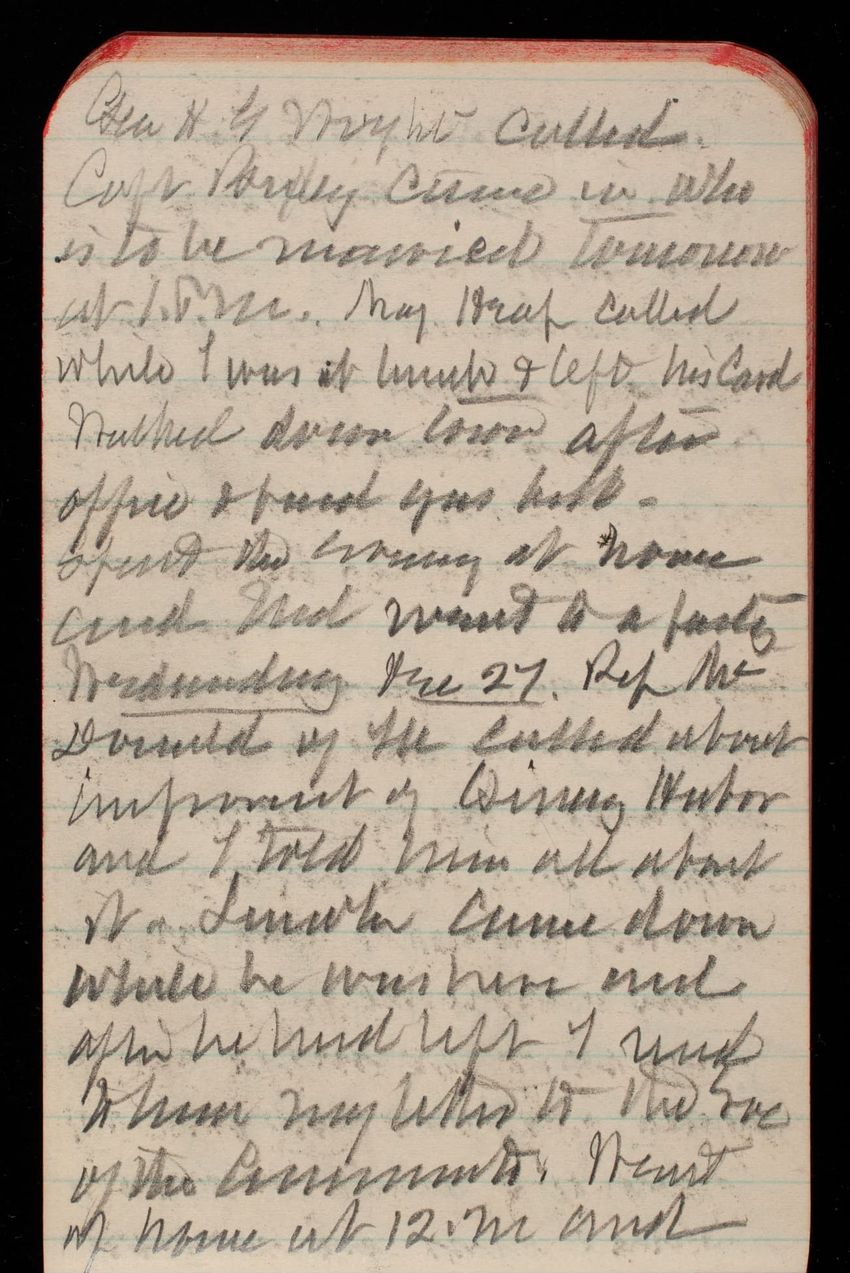 Gen H G Wright called.
Capt came in who
is to be married tomorrow
at 1. P.M. Maj Heap called
while I was at lunch & left his Card
Walked down town after
office & found gas bill -
spent the evening at home
and Thed went to a party
Wednesday Dec 27. Rep Mc
Donald of called about
improvmt of Harbor
and I told him all about
it. Lincoln came down
while he was here and
after he had left I read
to him my letter to the Sec
of the Committe. Went
home at 12. M and